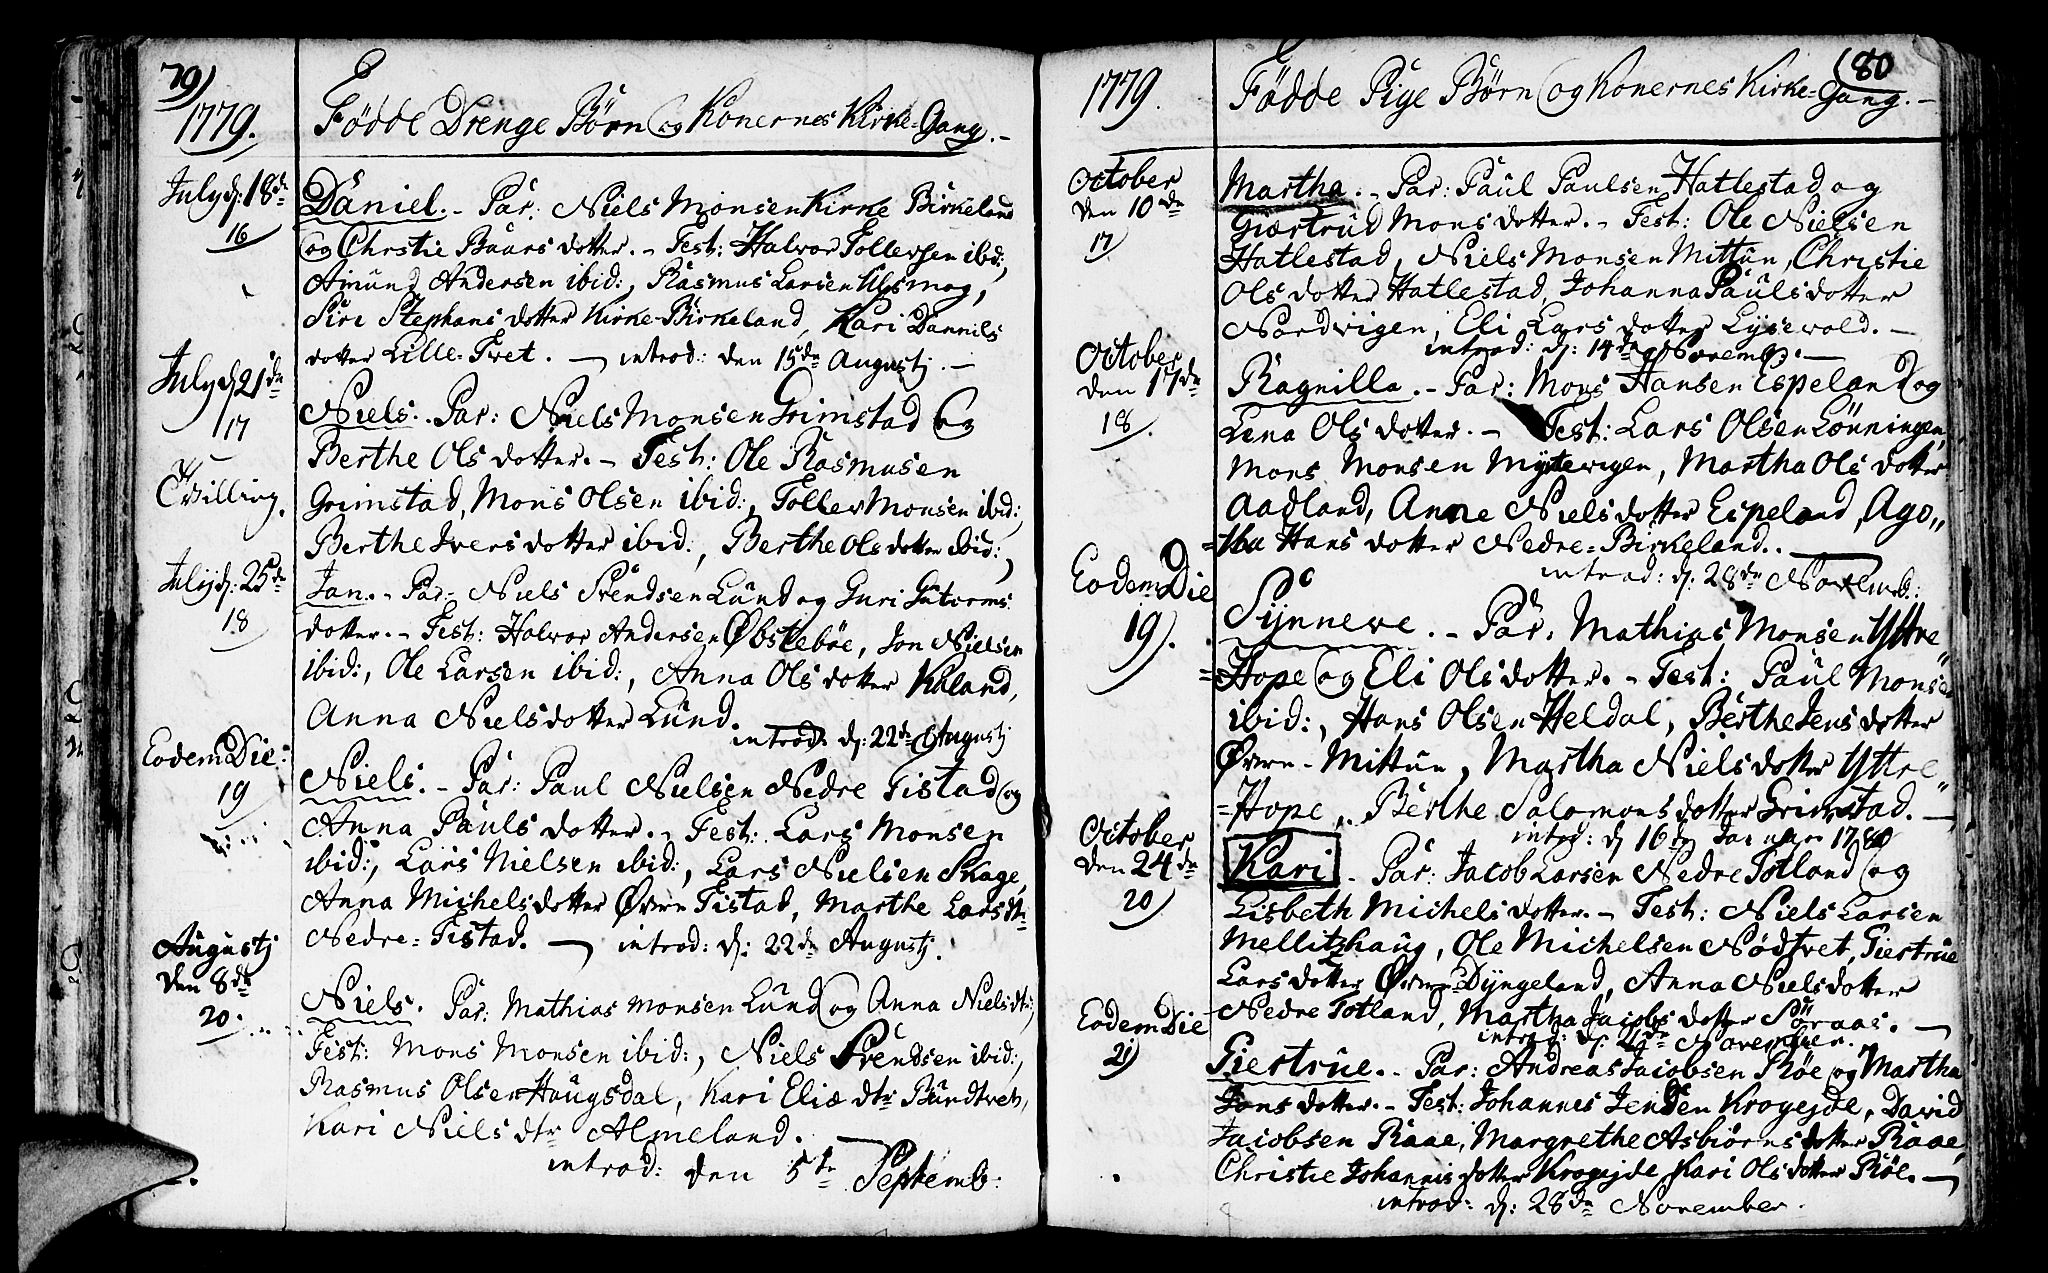 79)
1779.
Födde Drenge Börn og Konernes Kirke-Gang.
July d: 18de
16
Daniel. Par: Niels Monsen Kirke Birkeland
og Chrstie Baars dotter. Test: Halvor Tollevsen ibid:,
Amund Andersen ibid:, Rasmus Larsen Ulsmog,
Siri Stephans dotter Kirke-Birkeland, Kari Dannils
dotter Lille-Tvet. introd: den 15de Augustj.
July d: 21de
17
Niels. Par: Niels Monsen Grimstad og
Berthe Ols dotter. Test: Ole Rasmusen
Tvilling.
Grimstad, Mons Olsen ibid:, Tollev Monsen ibid:,
Berthe Ivers dotter ibid:, Berthe Ols dotter ibid:,
July d: 25de
18
Jan. Par: Niels Svendsen Lund og Guri Gutorms
dotter. Test: Halvor Andersen Øbstebøe, Jon Nielsen
ibid:, Ole Larsen ibid:, Anna Ols dotter Kaland,
Anna Niels dotter Lund.
introd: d: 22de Augustj
Eodem Die:
19
Niels. Par: Paul Nielsen Nedre Tistad og
Anna Pauls dotter. Test: Lars Monsen
ibid:, Lars Nielsen ibid:, Lars Nielsen Skage,
Anna Michels dotter Øvre Tistad, Marthe Lars dtr
Nedre-Tistad. introd: d: 22de Augustj.
Augustj
den 8de
20.
Niels. Par: Mathias Monsen Lund og Anna Niels dtr;
Test: Mons Monsen ibid:, Niels Svendsen ibid:,
Rasmus Olsen Haugsdal, Kari Eliæ dtr Bundtvet,
Kari Niels dtr Almeland.
introd: den 5te Septemb:
(80
1779.
Födde Pige Börn og Konernes Kirke-Gang.
October
den 10de
17)
Martha. Par: Paul Paulsen Hatlestad og
Giærtrud Mons dotter. Test: Ole Nielsen
Hatlestad, Niels Monsen Mittun, Christie
Ols dotter Hatlestad, Johanna Pauls dotter
Nordvigen, Eli Lars dotter Lysevold.
introd: d: 14de Novemb:
October
den 17de
18.
Ragnilla. Par: Mons Hansen Espeland og
Lena Ols dotter. Test: Lars Olsen Lönningen,
Mons Monsen Myrtevigen, Martha Ols dotter
Aadland, Anne Niels dotter Espeland, Ago,,
=tha Hans dotter Nedre=Birkeland.
introd: d: 28de Novemb:
Eodem Die
19).
Synneve. Par: Mathias Monsen Yttre
=Hope og Eli Ols dotter. Test: Paul Monsen
ibid:, Hans Olsen Heldal, Berthe Jens dotter
Øvre-Mittun, Martha Niels dotter Yttre
=Hope, Berthe Salomons dotter Grimstad.
introd: d 16de Januar 1780
October
den 24de
20)
Kari. Par: Jacob Larsen Nedre Totland og
Lisbeth Michels dotter. Test: Niels Larsen
Mellitzhaug, Ole Michelsen Nödtvet, Giertrue
Lars dotter Øvre-Dyngeland, Anna Niels dotter
Nedre Totland, Martha Jacobs dotter Söraas.
introd: d: November.
Eodem Die
21)
Giertrue. Par: Andreas Jacobsen Röe og Martha
Jons dotter. Test: Johannes Jensen Krogejde, David
Jacobsen Raae, Margrethe Asbiörns dotter Raae,
Christie Johannis dotter Krogejde, Kari Ols dotter Röe.
introd: d: 28de November.